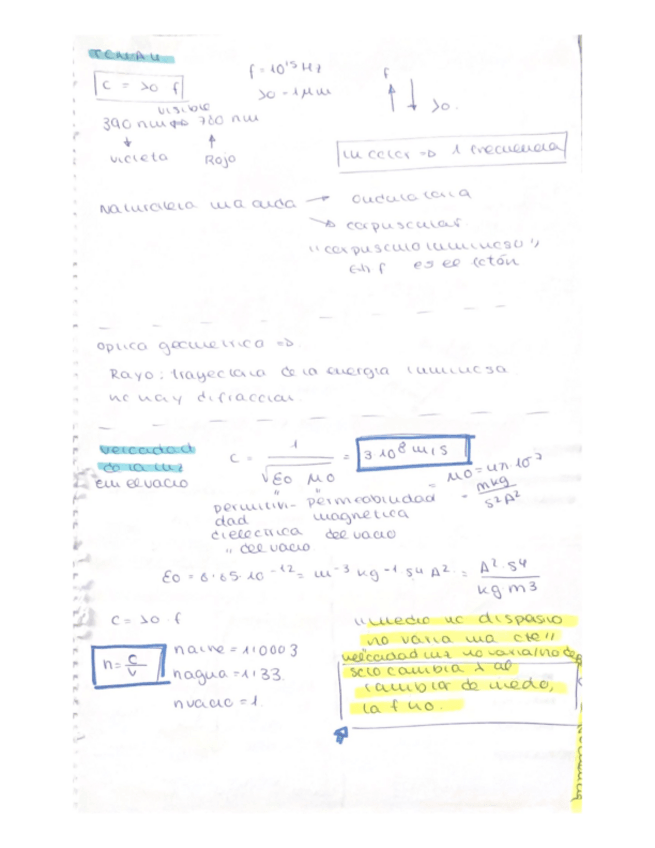 TEMA 4
c = λ0 f
f = 10^15 Hz
λ0 = 1 μm
f ↑ ↓ λ0.
visible
390 nm 780 nm
violeta Rojo
un color => 1 frecuencia
Naturaleza ondulatoria
corpuscular.
"corpusculo luminoso"
es el fotón
optica geometrica =>
Rayo: trayectoria de la energia luminosa
no hay difraccion.
velocidad
de la luz
en el vacio
c = 1 / √ε0 μ0 = 3·10^8 m/s
μ0 = 4π·10^-7
= mkg / s²A²
permitivi- permeabilidad
dad magnetica
dielectrica del vacio
" del vacio
ε0 = 8'85·10^-12 = m^-3 kg^-1 s4 A² = A²·s4 / kg m3
c = λ0·f
n = c/v
naire = 1'0003
nagua = 1'33.
nvacio = 1.
"medio no
no varia
velocidad luz no varia
solo cambia λ al
cambiar de medio,
la f no.